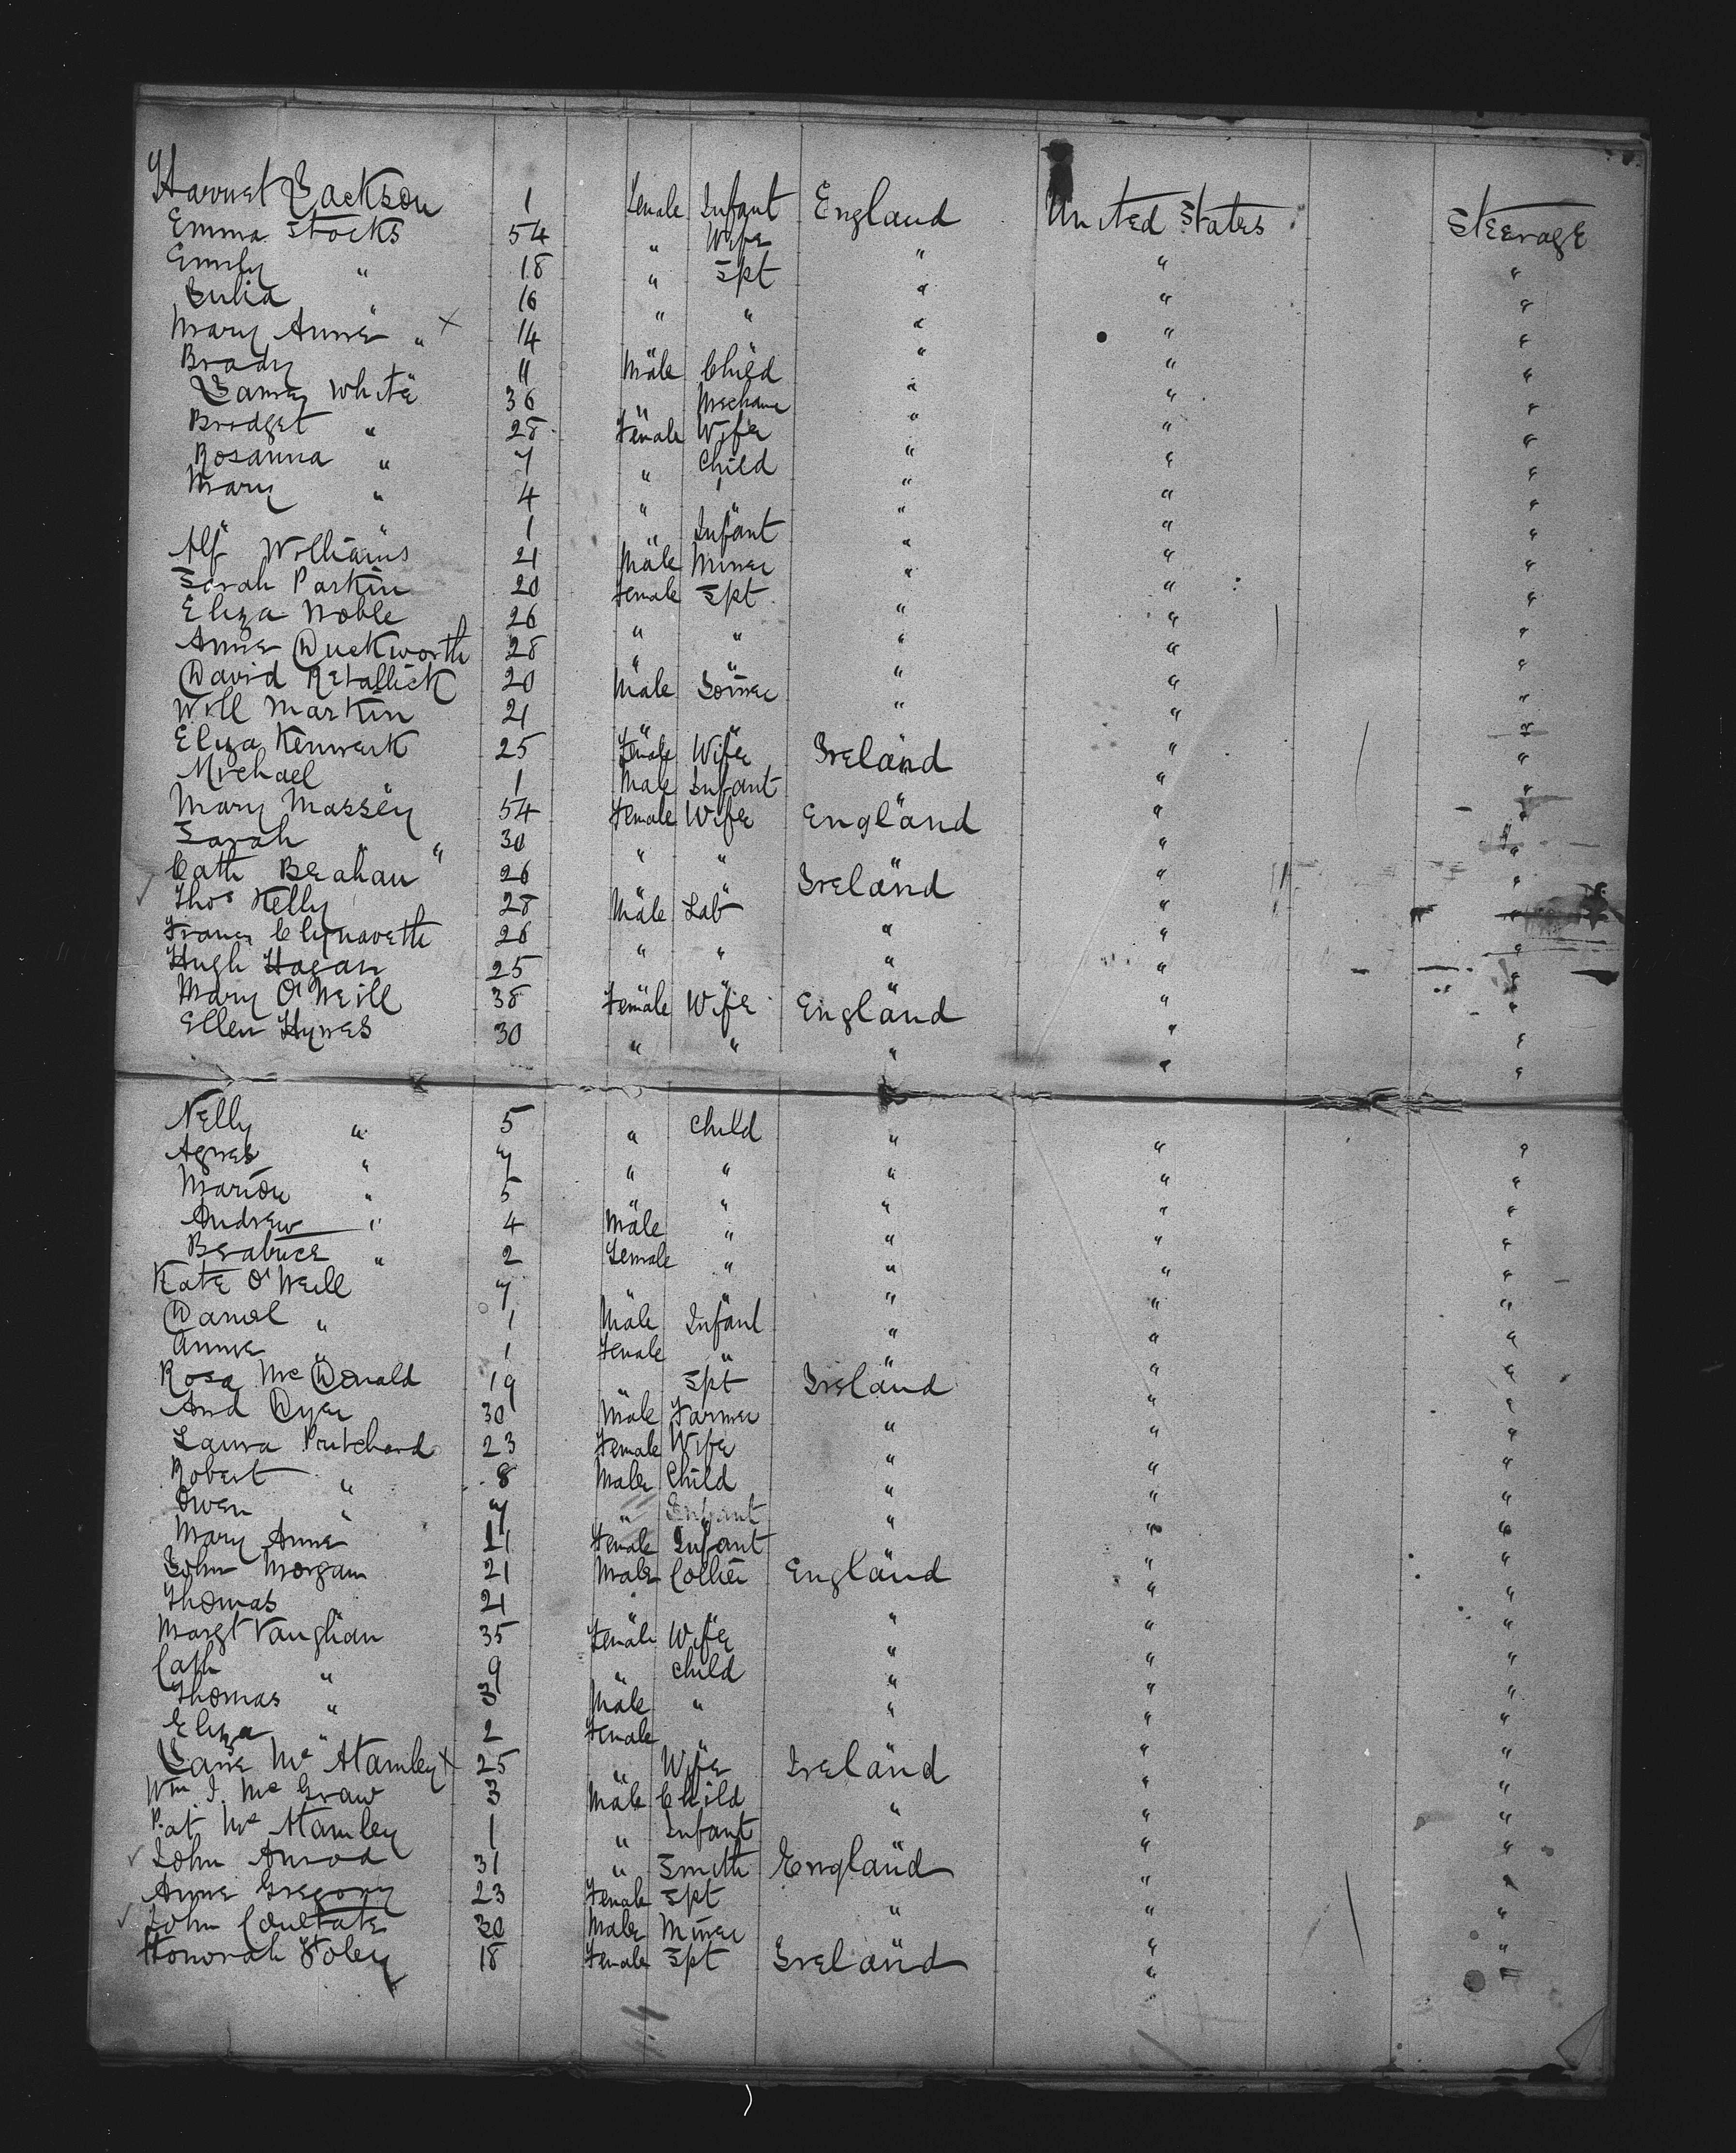 Harriet Jackson 1 Female Infant England United States Steerage
Emma Stocks 54 " Wife " " "
Emily " 18 " Spt " " "
Julia " 16 " " " " "
Mary Anne " × 14 " " " " "
Brady " 11 Male Child " " "
James White 36 " Mechanic " " "
Bridget " 28 Female Wife " " "
Rosanna " 7 " Child " " "
Mary " 4 " " " " "
" " 1 " Infant " " "
Alf Williams 21 Male Miner " " "
Sarah Parkin 20 Female Spt " " "
Eliza Noble 26 " " " " "
Anne Duckworth 28 " " " " "
David Retallick 20 Male " " "
Will Martin 21 " " " " "
Eliza 25 Female Wife Ireland " "
Michael " 1 Male Infant " " "
Mary Massey 54 Female Wife England " "
Sarah " 30 " " " " "
Cath Beahan 26 " " Ireland " "
✓ Thos Kelly 28 Male Lab " " "
26 " " " " "
Hugh Hagan 25 " " " " "
Mary O'Neill 38 Female Wife England " "
Ellen Hynes 30 " " " " "
Nelly " 5 " Child " " "
Agnes " 7 " " " " "
Marion " 5 " " " " "
Andrew " 4 Male " " " "
Beatrice " 2 Female " " " "
Kate O'Neill 7 " " " " "
Daniel " 1 Male Infant " " "
Annie " 1 Female " " " "
Rosa McDonald 19 " Spt Ireland " "
And Dyer 30 Male Farmer " " "
Laura Pritchard 23 Female Wife " " "
Robert " 8 Male Child " " "
Owen " 7 " " " "
Mary Anne " 11 Female Infant " " "
John Morgan 21 Male Collier England " "
Thomas " 21 " " " " "
Margt Vaughan 35 Female Wife " " "
Cath " 9 " Child " " "
Thomas " 3 Male " " " "
Eliza " 2 Female " " " "
Jane Mc Stamley × 25 " Wife Ireland " "
Wm. J. McGraw 3 Male Child " " "
Pat Mc Stamley 1 " Infant " " "
✓ John 31 " Smith England " "
Anne Gregory 23 Female Spt " " "
✓ John Coultate 30 Male Miner " " "
Honorah Foley 18 Female Spt Ireland " "